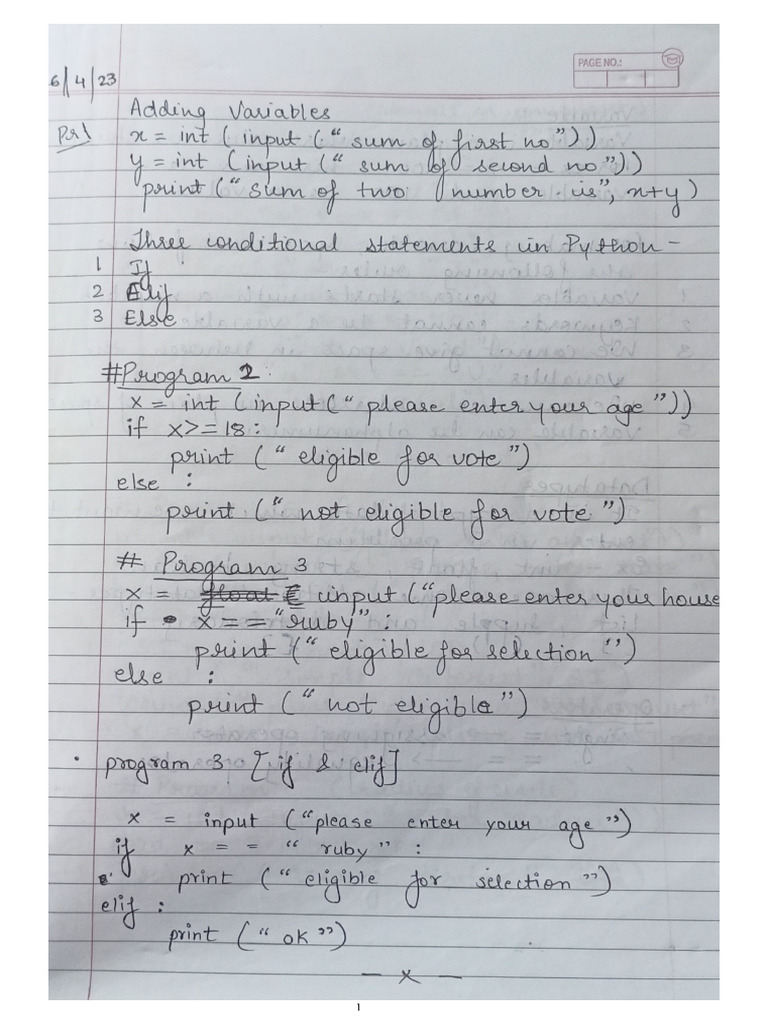 PAGE NO.:
6/4/23
Adding Variables
Pr1 x = int (input (“ sum of first no”))
y = int (input (“ sum of second no”))
print (“sum of two number is”, x+y)
Three conditional statements in Python -
1 If
2 Elif
3 Else
#Program 2:
x = int (input (“ please enter your age”))
if x>=18:
print (“ eligible for vote”)
else :
print (“ not eligible for vote”)
# Program 3
x = float input (“please enter your house
if x = = “ruby” :
print (“ eligible for selection ”)
else :
print (“ not eligible”)
• program 3 [if & elif]
x = input (“please enter your age”)
if x = = “ ruby” :
print (“ eligible for selection”)
elif :
print (“ ok”)
— x —
1